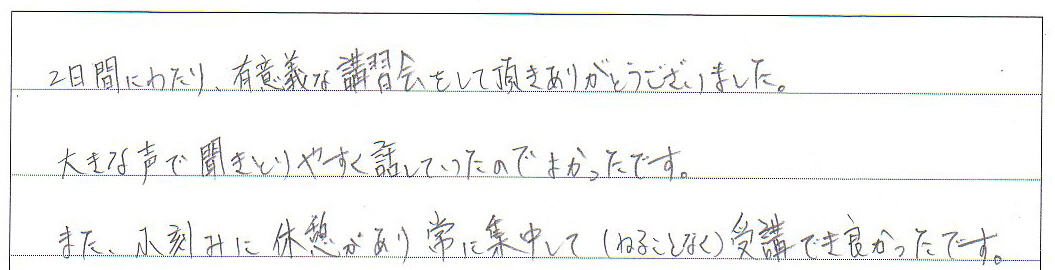 2日間にわたり、有意義な講習会をして頂きありがとうございました。
大きな声で聞きとりやすく話していったのでよかったです。
また、小刻みに休憩があり常に集中して（ねることなく）受講でき良かったです。